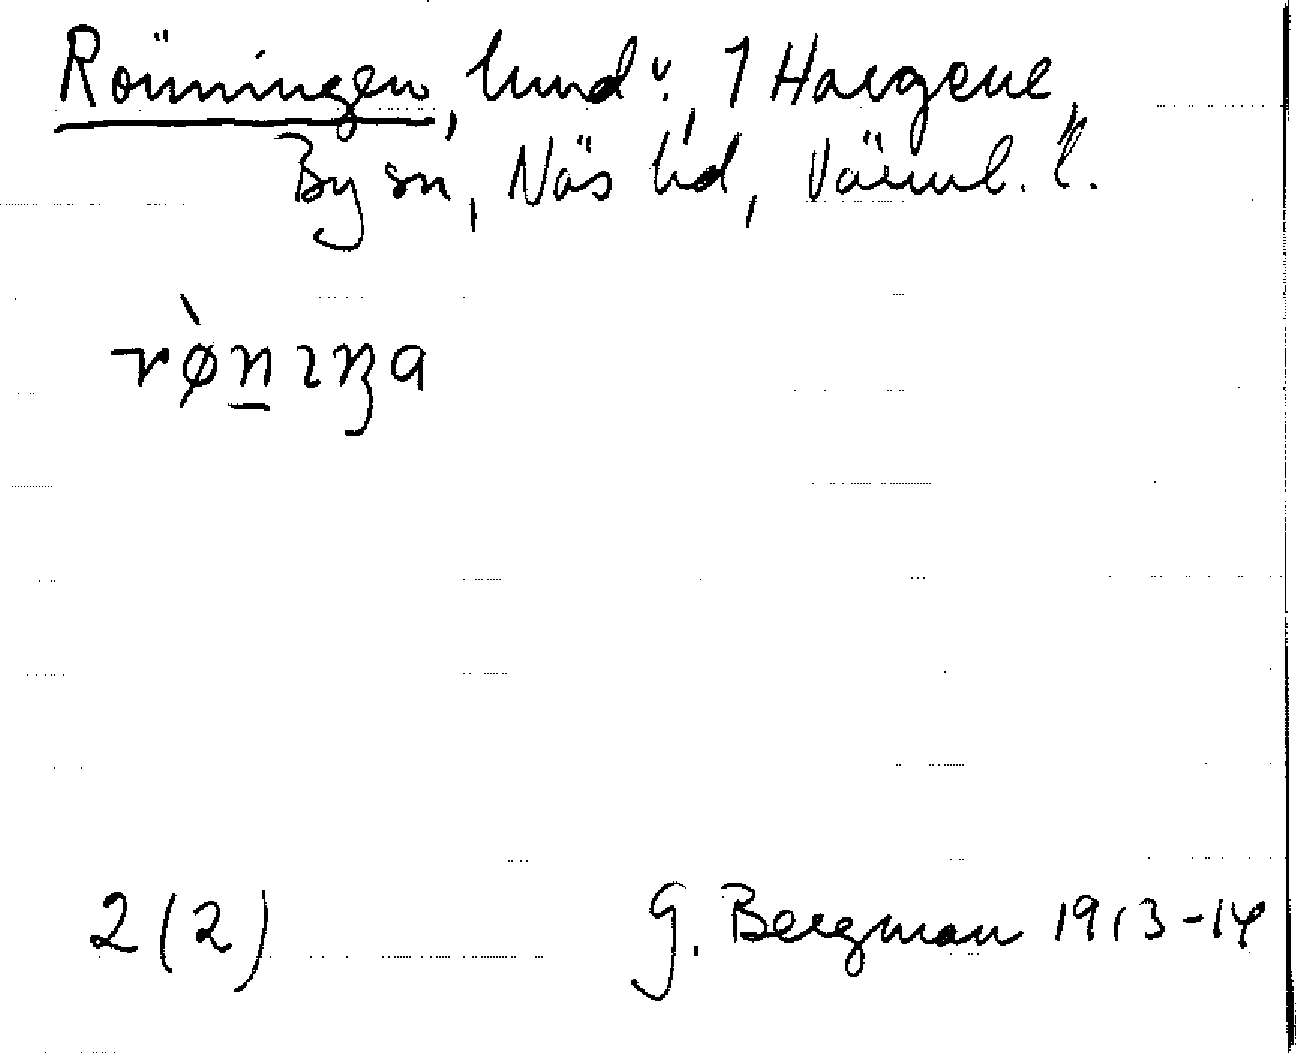 Rönningen, lund v. 1 Hargene,
By sn, Näs hd, Värml. l.
rø̀n̲ıŋa
2(2) G. Bergman 1913-14